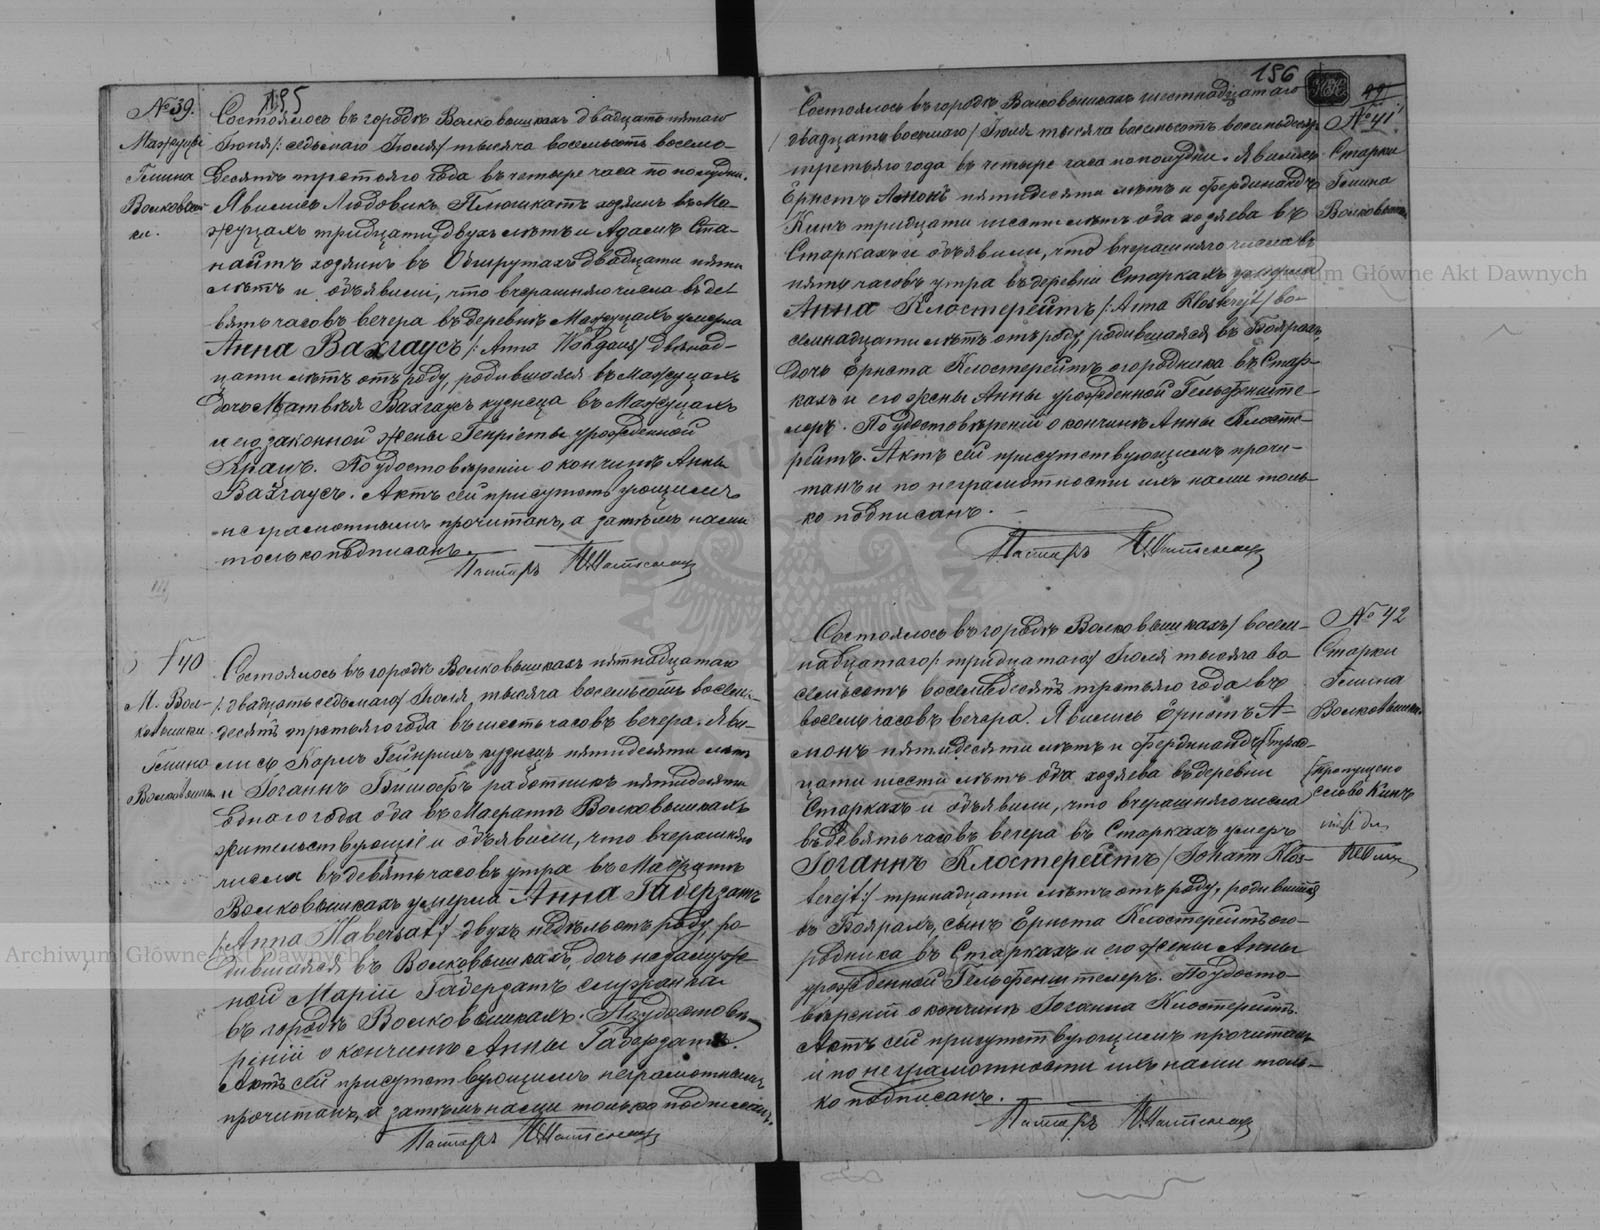 195
№ 39.
Мажуцы
Гмина
Волковыш-
ки.
Состоялось въ городѣ Волковышкахъ двадцать пятаго
Іюня /: седьмаго Іюля/ тысяча восемьсотъ восемь-
десятъ третьяго года въ четыре часа по полудни.
Явились Людовикъ Плюшкатъ хозяинъ въ Ма-
жуцахъ тридцати двухъ лѣтъ и Адамъ Ста-
найтъ хозяинъ въ Обшрутахъ двадцати пяти
лѣтъ и объявили, что вчерашняго числа въ де-
вять часовъ вечера въ деревнѣ Мажуцахъ умерла
Анна Вахгаусъ /: Anna Wachgaus/ двѣнад-
цати лѣтъ отъ роду, родившаяся въ Мажуцахъ
дочь Матвѣя Вахгаусъ кузнеца въ Мажуцахъ
и его законной жены Генріеты урожденной
Кранъ. По удостовѣреніи о кончинѣ Анны
Вахгаусъ. Актъ сей присутствующимъ
неграмотнымъ прочитанъ, а затѣмъ нами
только подписанъ.
Пасторъ
40
М. Вол-
ковышки
Гмина
Волковышки
Состоялось въ городѣ Волковышкахъ пятнадцатаго
/: двадцать седьмаго/ Іюля, тысяча восемьсотъ восемь-
десятъ третьяго года въ шесть часовъ вечера. Яви-
лись Карлъ Гейнрихъ кузнецъ пятидесяти лѣтъ
и Іоганнъ Бишофъ работникъ пятидесяти
одного года оба въ Маератѣ Волковышкахъ
жительствующіе и объявили, что вчерашняго
числа въ девять часовъ утра въ Маератѣ
Волковышкахъ умерла Анна Габерзатъ
/: Anna Habersat/ двухъ недѣль отъ роду, ро-
дившаяся въ Волковышкахъ, дочь незамуж-
ной Маріи Габерзатъ служанки
въ городѣ Волковышкахъ. По удостовѣ-
реніи о кончинѣ Анны Габерзатъ.
Актъ сей присутствующимъ неграмотнымъ
прочитанъ, а затѣмъ нами только подписанъ.
Пасторъ
196
№ 41
Старки
Гмина
Волковышки
Состоялось въ городѣ Волковышкахъ шестнадцатаго
/ двадцать восьмаго/ Іюля тысяча восемьсотъ восемьдесятъ
третьяго года въ четыре часа по полудни. Явились
Ернстъ Амонъ пятидесяти лѣтъ и Фердинандъ
Кинъ тридцати шести лѣтъ оба хозяева въ
Старкахъ и объявили, что вчерашняго числа въ
пять часовъ утра въ деревнѣ Старкахъ умерла
Анна Клостерейтъ /: Anna Klosterejt/ во-
семнадцати лѣтъ отъ роду, родившаяся въ Боярахъ,
дочь Ернста Клостерейтъ огородника въ Стар-
кахъ и его жены Анны урожденной Гельфенште-
леръ. По удостовѣреніи о кончинѣ Анны Клосте-
рейтъ. Актъ сей присутствующимъ прочи-
танъ и по неграмотности ихъ нами толь-
ко подписанъ.
Пасторъ
№ 42
Старки
Гмина
Волковышки.
Состоялось въ городѣ Волковышкахъ / восем-
надцатаго /: тридцатаго/ Іюля тысяча во-
семьсотъ восемьдесятъ третьяго года въ
восемь часовъ вечера. Явились Ернстъ А-
монъ пятидесяти лѣтъ и Фердинандъ трид-
цати шести лѣтъ оба хозяева въ деревни
Старкахъ и объявили, что вчерашняго числа
въ девять часовъ вечера въ Старкахъ умеръ
Іоганнъ Клостерейтъ / Johann Klos-
terejt:/ тринадцати лѣтъ отъ роду, родившійся
въ Боярахъ, сынъ Ернста Клостерейтъ ого-
родника въ Старкахъ и его жены Анны
урожденной Гельфенштелеръ. По удосто-
вѣреніи о кончинѣ Іоганна Клостерейтъ.
Актъ сей присутствующимъ прочитанъ
и по неграмотности ихъ нами толь-
ко подписанъ.
пропущено
слово Кинъ
Пасторъ
Archiwum Główne Akt Dawnych
Archiwum Główne Akt Dawnych